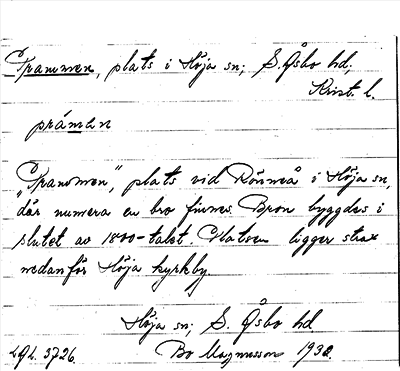 Prammen, plats i Höja sn; S. Åsbo hd;
Krist. l.
prámen
"Prammen", plats vid Rönneå i Höja sn,
där numera en bro finnes. Bron byggdes i
slutet av 1800-talet. Platsen ligger strax
nedanför Höja kyrkby.
Höja sn; S. Åsbo hd
Bo Magnusson 1932.
3726.